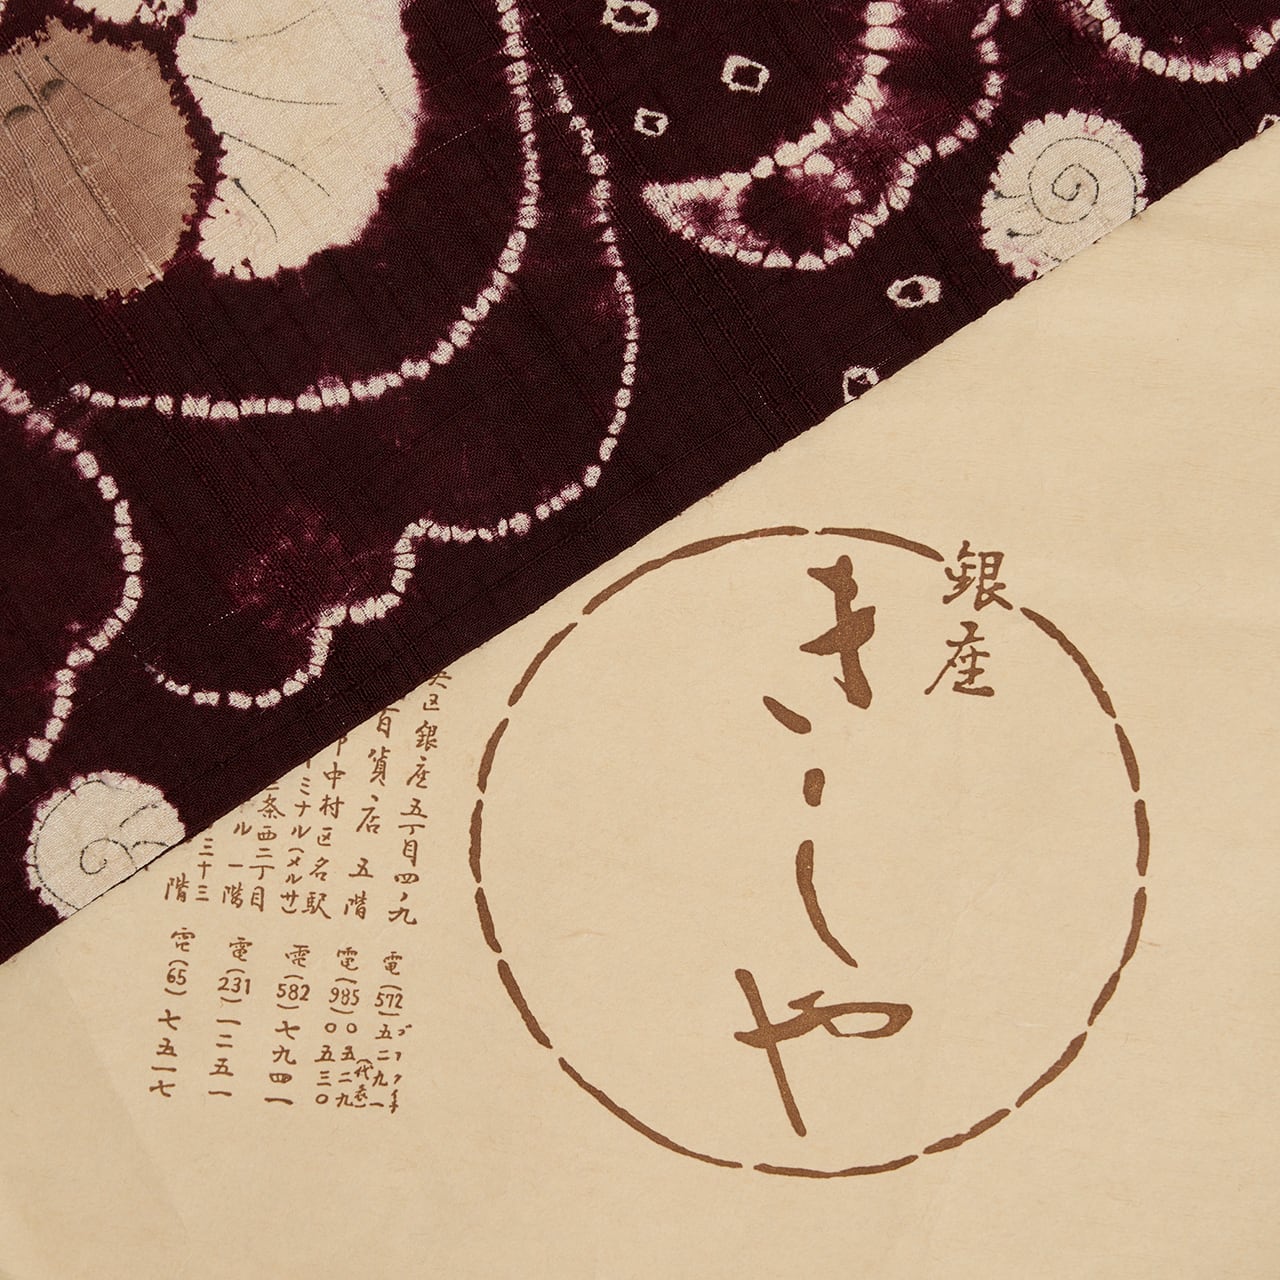 銀座
きしや
区銀座五丁目四ノ九
電(572)五二九一
百貨店 五階
電(985)〇五二九
(代表)
〇五三〇
中村区名駅
ミナル(メルサ)
電(582)七九四一
条西二丁目
ル 一階
電(231)一二五一
三十三
階
電(65)七五一七